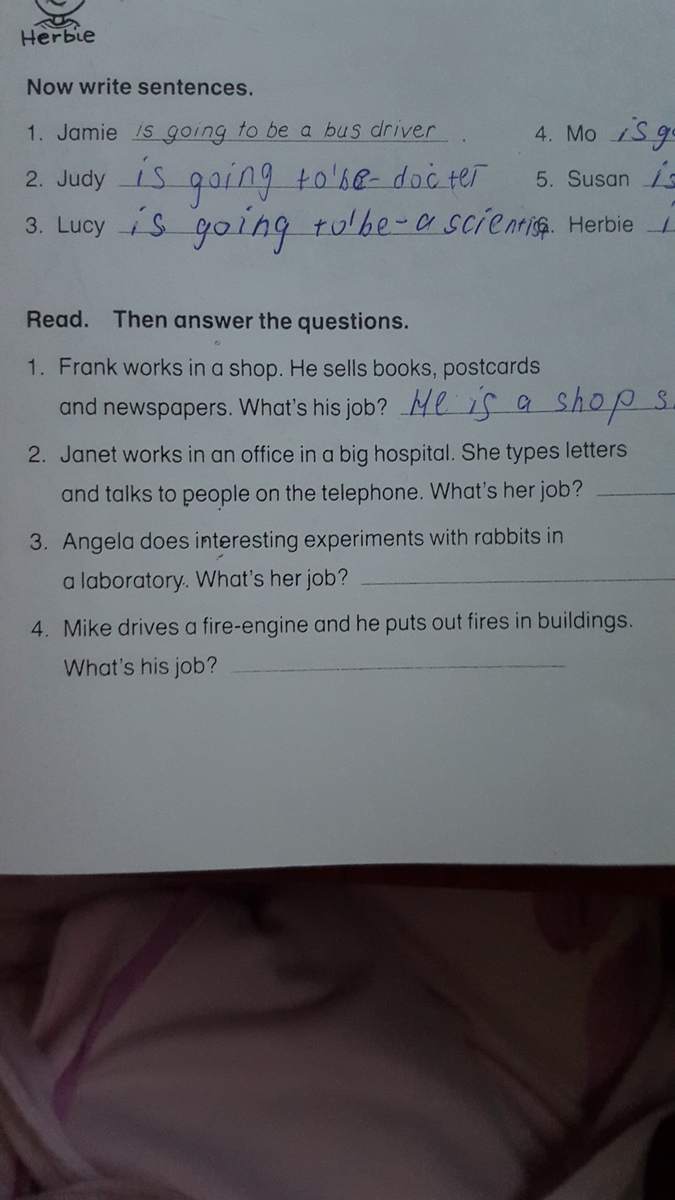 Herbie
Now write sentences.
1. Jamie is going to be a bus driver . 4. Mo is g
2. Judy is going to'be- docter 5. Susan is
3. Lucy is going to'be-a scientis 6. Herbie i
Read. Then answer the questions.
1. Frank works in a shop. He sells books, postcards
and newspapers. What's his job? He is a shop s
2. Janet works in an office in a big hospital. She types letters
and talks to people on the telephone. What's her job?
3. Angela does interesting experiments with rabbits in
a laboratory. What's her job?
4. Mike drives a fire-engine and he puts out fires in buildings.
What's his job?